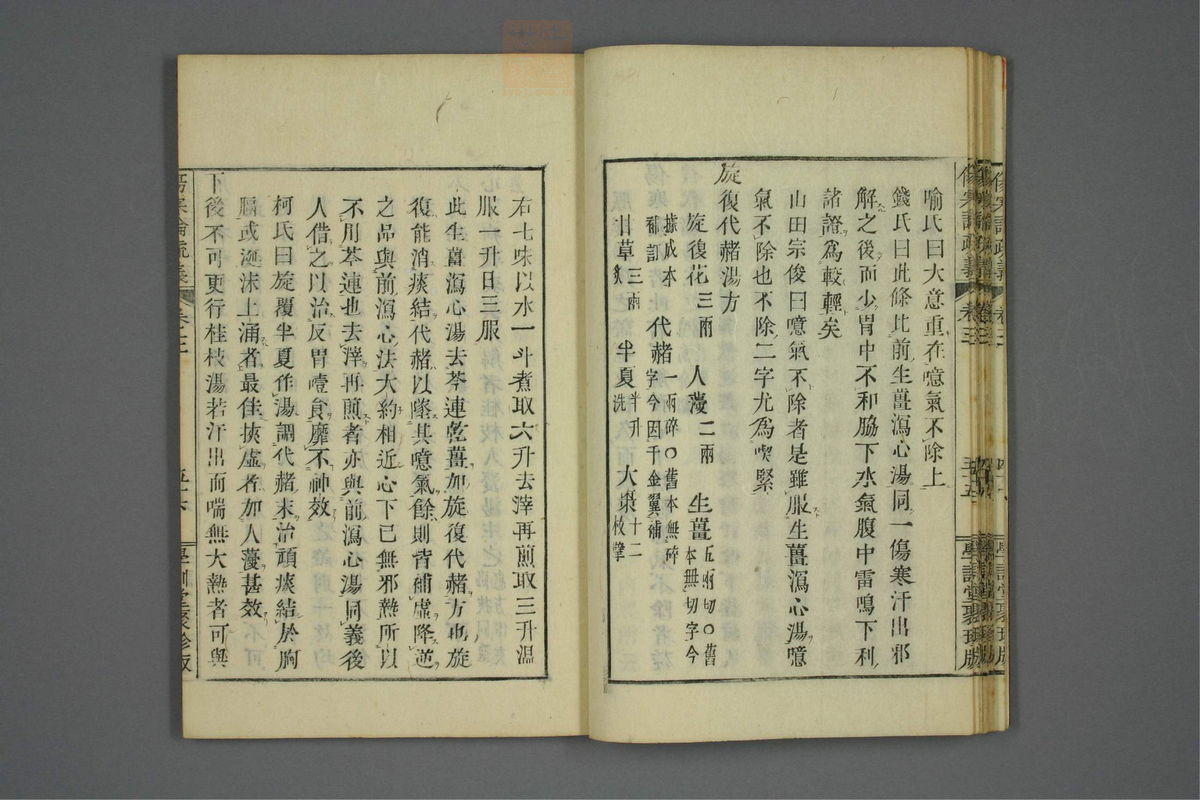 喻氏曰大意重在噫氣不除上
錢氏曰此條比前生薑瀉心湯同一傷寒汗出邪
解之後而少胃中不和脇下水氣腹中雷鳴下利
諸證爲較輕矣
山田宗俊曰噫氣不除者是雖服生薑瀉心湯噫
氣不除也不除二字尤爲喫緊
旋復代赭湯方
旋復花三兩 人蓡二兩 生薑五兩切○舊本無切字今
據成本補訂 代赭一兩碎○舊本無碎字今因千金翼補
甘草三兩炙 半夏半升洗 大棗十二枚擘
右七味以水一斗煮取六升去滓再煎取三升溫
服一升日三服
此生薑瀉心湯去芩連乾薑加旋復代赭方也旋
復能消痰結代赭以墜其噫氣餘則皆補虛降逆
之品與前瀉心法大約相近心下已無邪熱所以
不用芩連也去滓再煎者亦與前瀉心湯同義後
人借之以治反胃噎食靡不神效
柯氏曰旋覆半夏作湯調代赭末治頑痰結於胸
膈或涎沫上涌者最佳挾虛者加人蓡甚效
下後不可更行桂枝湯若汗出而喘無大熱者可與
卷三
五十六